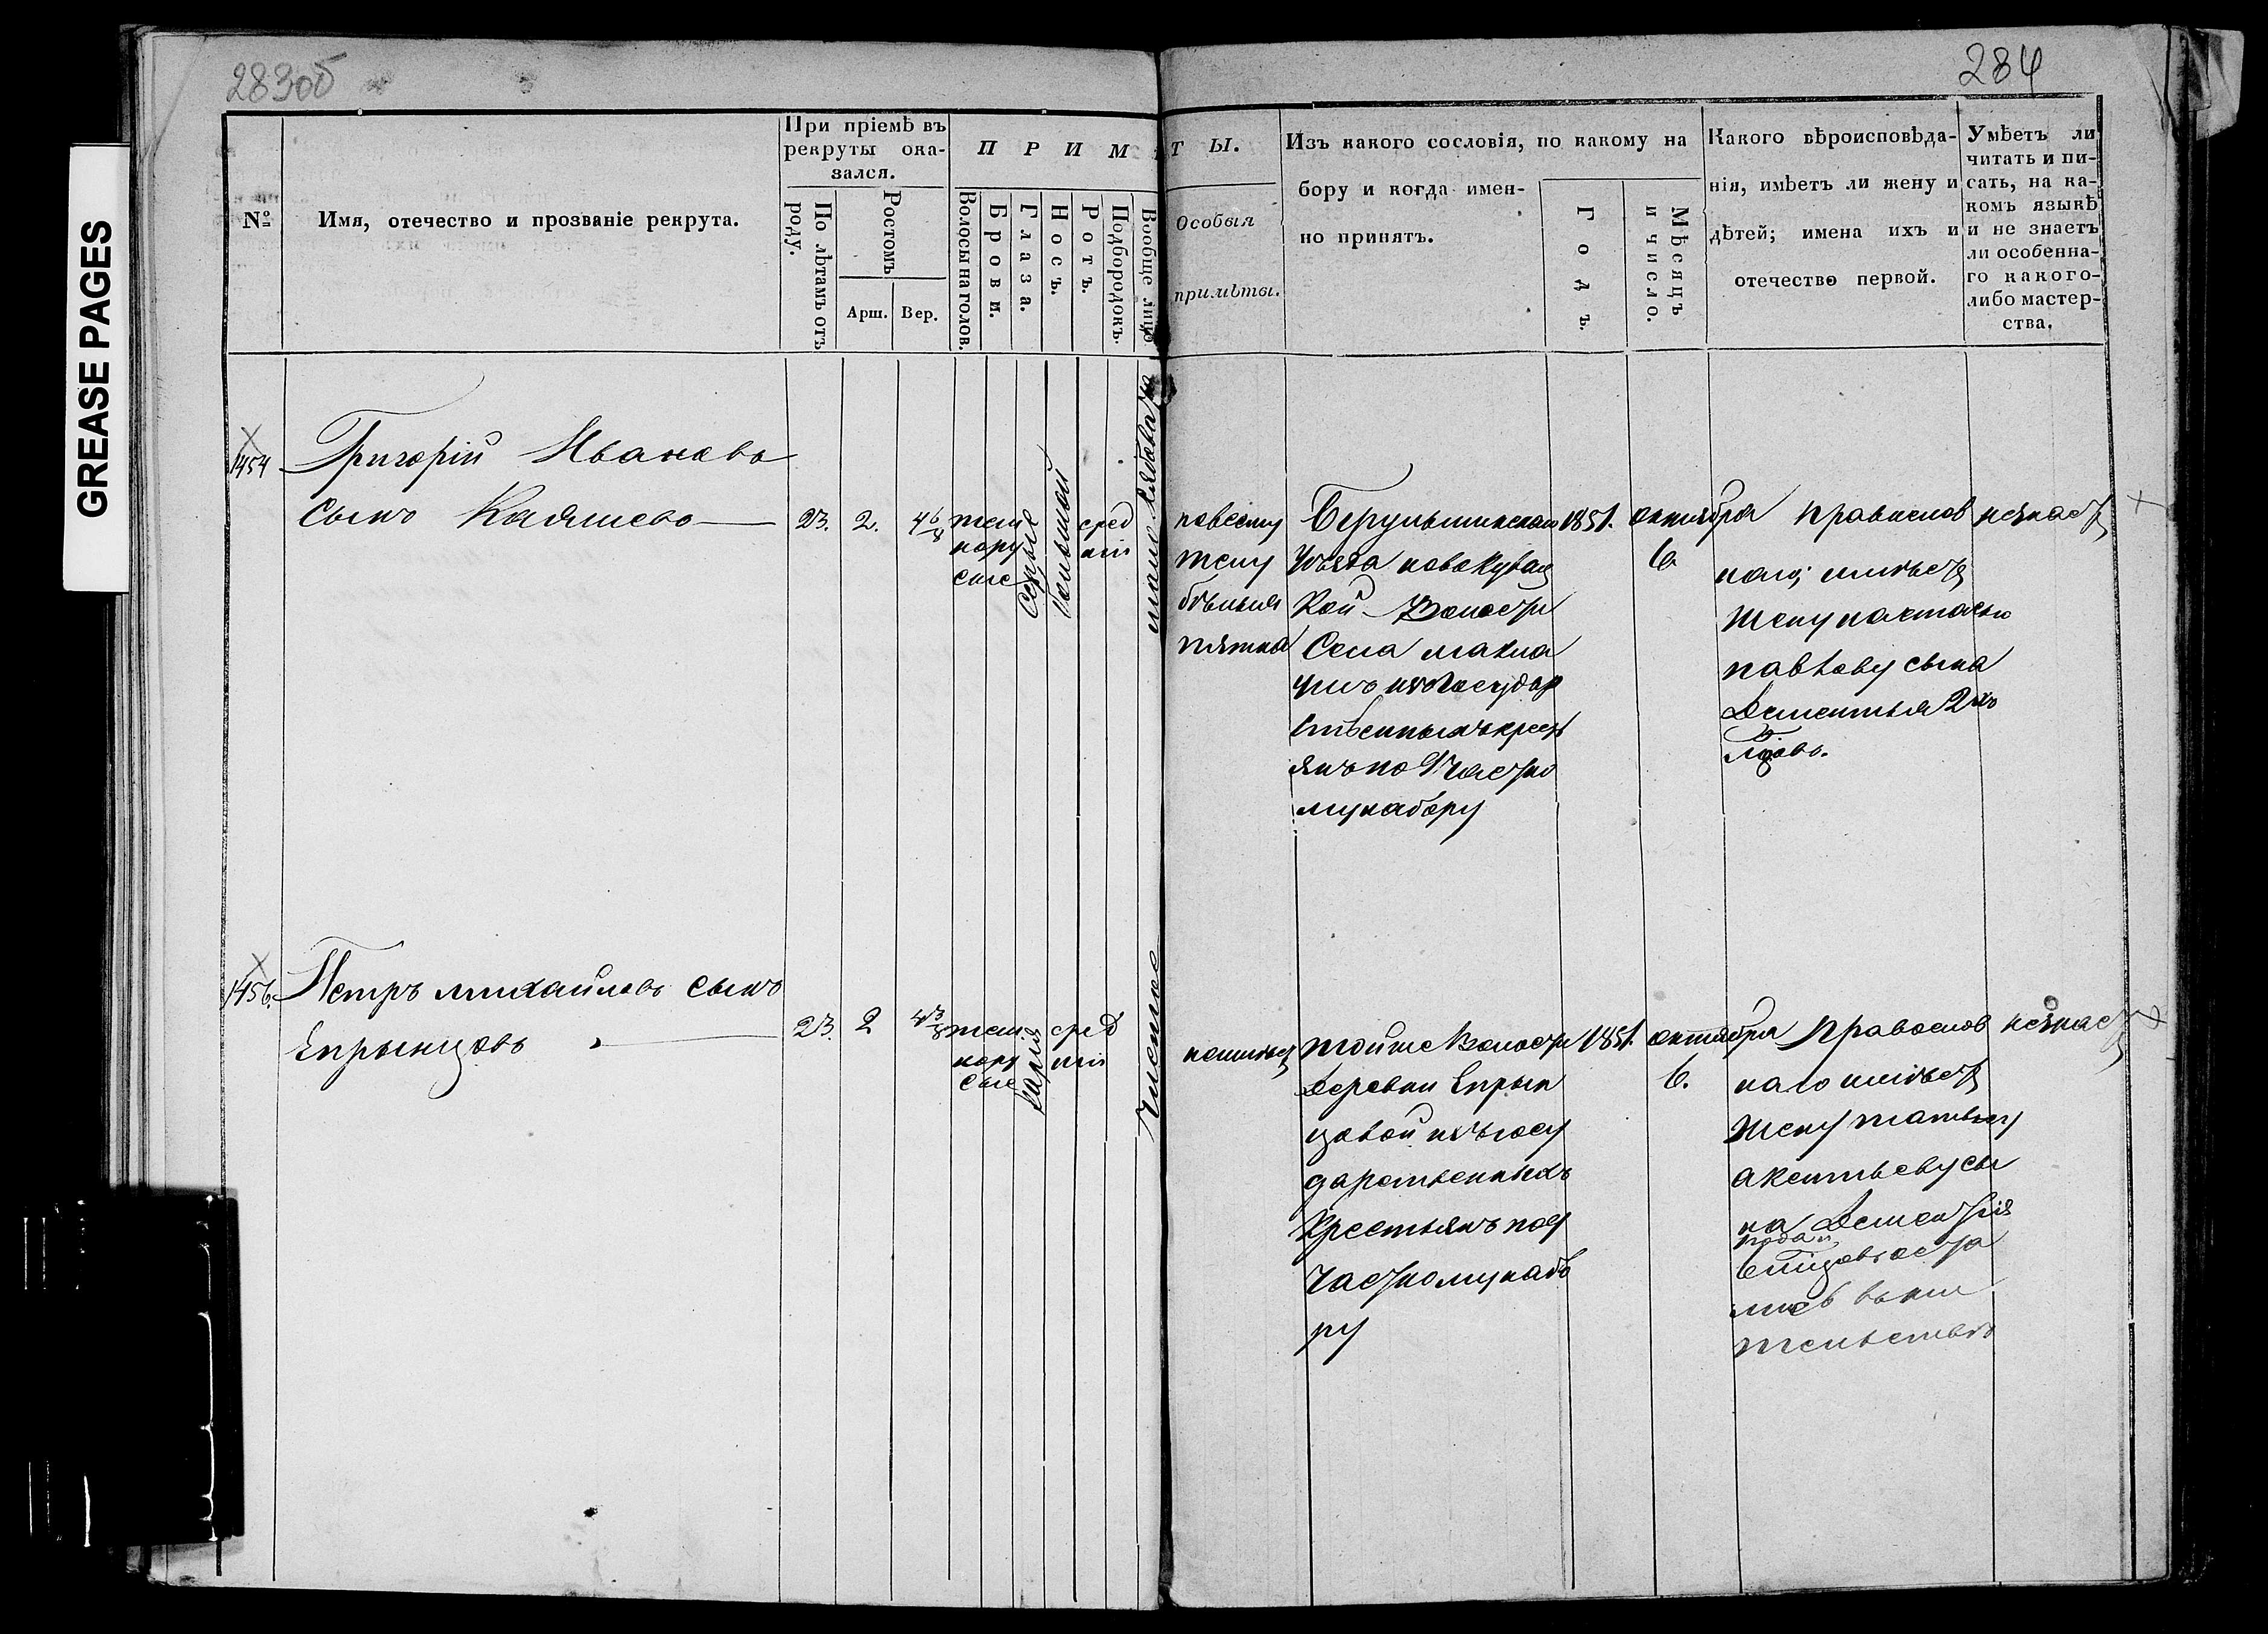 GREASE PAGES
283об
284
№
Имя, отечество и прозваніе рекрута.
При пріемѣ въ
рекруты ока-
зался.
По лѣтамъ отъ
роду.
Ростомъ
Арш.
Вер.
П Р И М
Волосы на голов.
Брови.
Глаза.
Носъ.
Ротъ.
Подбородокъ.
Вообще лицо
Т Ы.
Особыя
примѣты.
Изъ какого сословія, по какому на
бору и когда имен-
но принятъ.
Годъ.
Мѣсяцъ
и число.
Какого вѣроисповѣда-
нія, имѣетъ ли жену и
дѣтей; имена ихъ и
отечество первой.
Умѣетъ ли
читать и пи-
сать, на ка-
комъ языкѣ
и не знаетъ
ли особенна-
го какого-
либо мастер-
ства.
1454
Григорій Ивановъ
сынъ
23.
2.
4 6/8
темн
нору
сыс
серые
большой
сред
ніи
мало рябовато
повсему
телу
бѣлыя
пятна
уѣзда
кой Волости
Села
чихъ изъ Государ
ственныхъ крест
янъ по 9 Частно
му набору
1851.
октября
6
православ
наго; имѣетъ
жену настасью
павлову сына
Дементья 2хъ
годовъ.
незнаетъ
1456.
Петръ михайловъ сынъ
Епрынцовъ
23.
2
4 3/8
темн.
нору
сыс
карія
сред
ніи
Чистое
неимѣетъ
тойже Волости
Деревни Епрын
цовой изъ госу
дарственныхъ
Крестьянъ по 9
Частному набо
ру
1851.
октября
6.
Православ
наго имѣетъ
жену татьяну
аксентьеву сы
на Дементія
года и
остa
лись
жительствѣ
незнаетъ